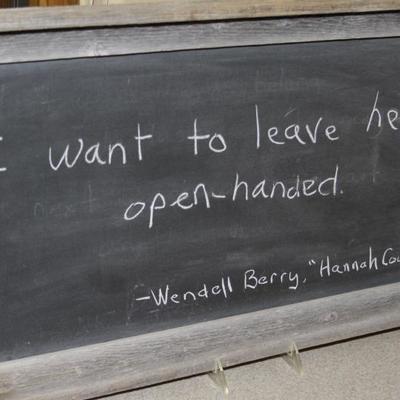 I want to leave he
open-handed.
-Wendell Berry, "Hannah Cou